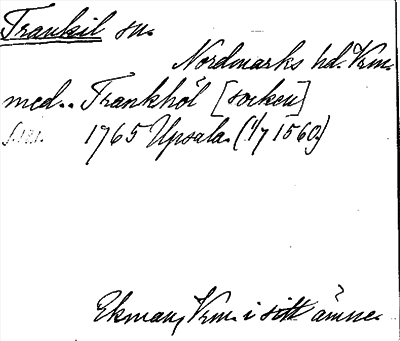 Trankil sn.
Nordmarks hd. Vrm.
med.. Trankhöl [socken]
s. 121. 1765 Upsala. (1/7 1560.)
Ekman, Vrm. i sitt ämne.